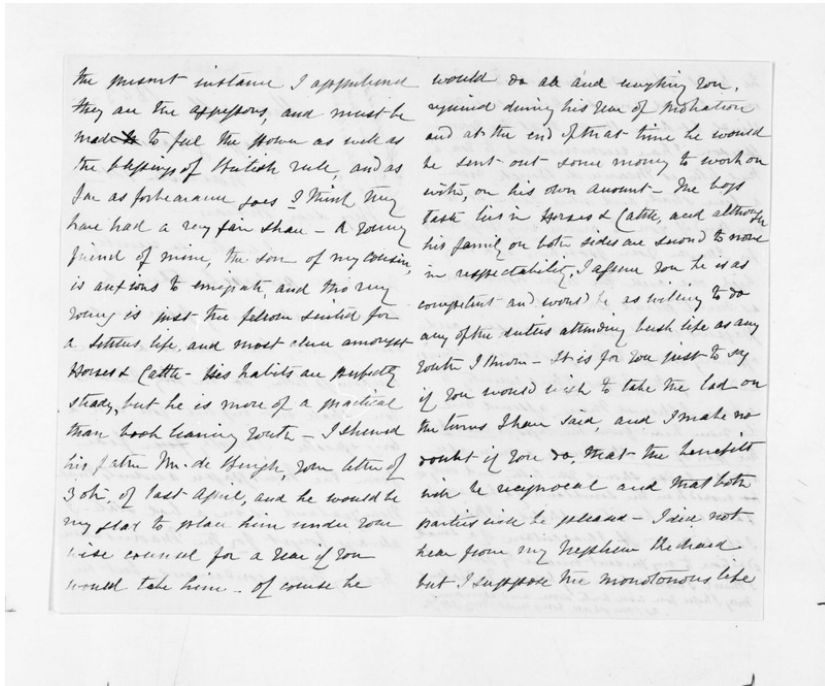 the present instance I apprehend
they are the aggressors, and must be
made to feel the power as well as
the blessings of British rule, and as
far as forbearance goes I think they
have had a very fair share - A young
friend of mine, the son of my cousin,
is anxious to emigrate, and tho very
young is just the fellow suited for
a settlers life, and most clever amongst
Horses & Cattle - His habits are perfectly
steady, but he is more of a practical
than book learning youth - I shewed
his father Mr. de Burgh, your letter of
30th, of last April, and he would be
very glad to place him under your
wise council for a year if you
would take him - of course he
would do all and anything you,
required during his year of probation
and at the end of that time he would
be sent out some money to work on
with, on his own amount - The boys
taste lies in Horses & Cattle, and although
his family on both sides are second to none
in respectability, I assure you he is as
competent and would be as willing to do
any of the duties attending bush life as any
youth I know - It is for you just to say
if you would wish to take the lad on
the terms I have said, and I make no
doubt if you do, that the benefits
will be reciprocal and that both
parties will be pleased - I did not
hear from my Nephew Richard
but I suppose the monotonous life